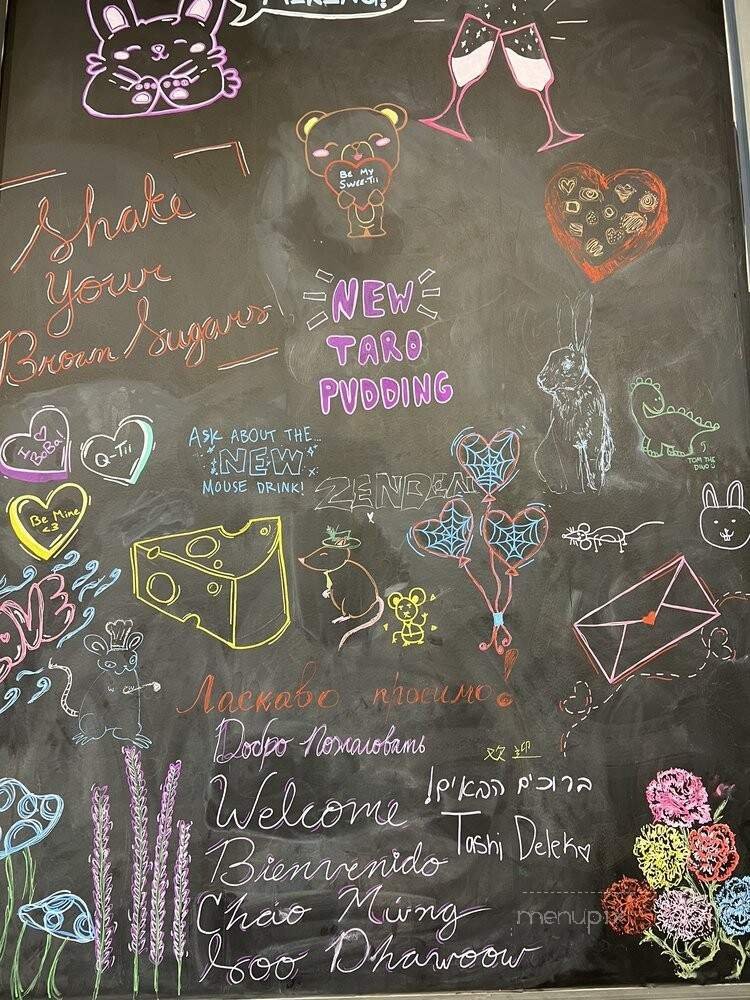 HIRING!
Be My
Swee-Tii
Shake
Your
Brown Sugars
NEW
TARO
PUDDING
I
BoBa
Q-Tii
ASK ABOUT THE...
NEW
MOUSE DRINK!
TOM THE
DINO
Be Mine
<3
LOVE
Ласкаво просимо!
Добро Пожаловать
欢迎
Welcome
ברוכים הבאים!
Tashi Delek
Bienvenido
Chào Mừng
Soo Dhawoow
menupix